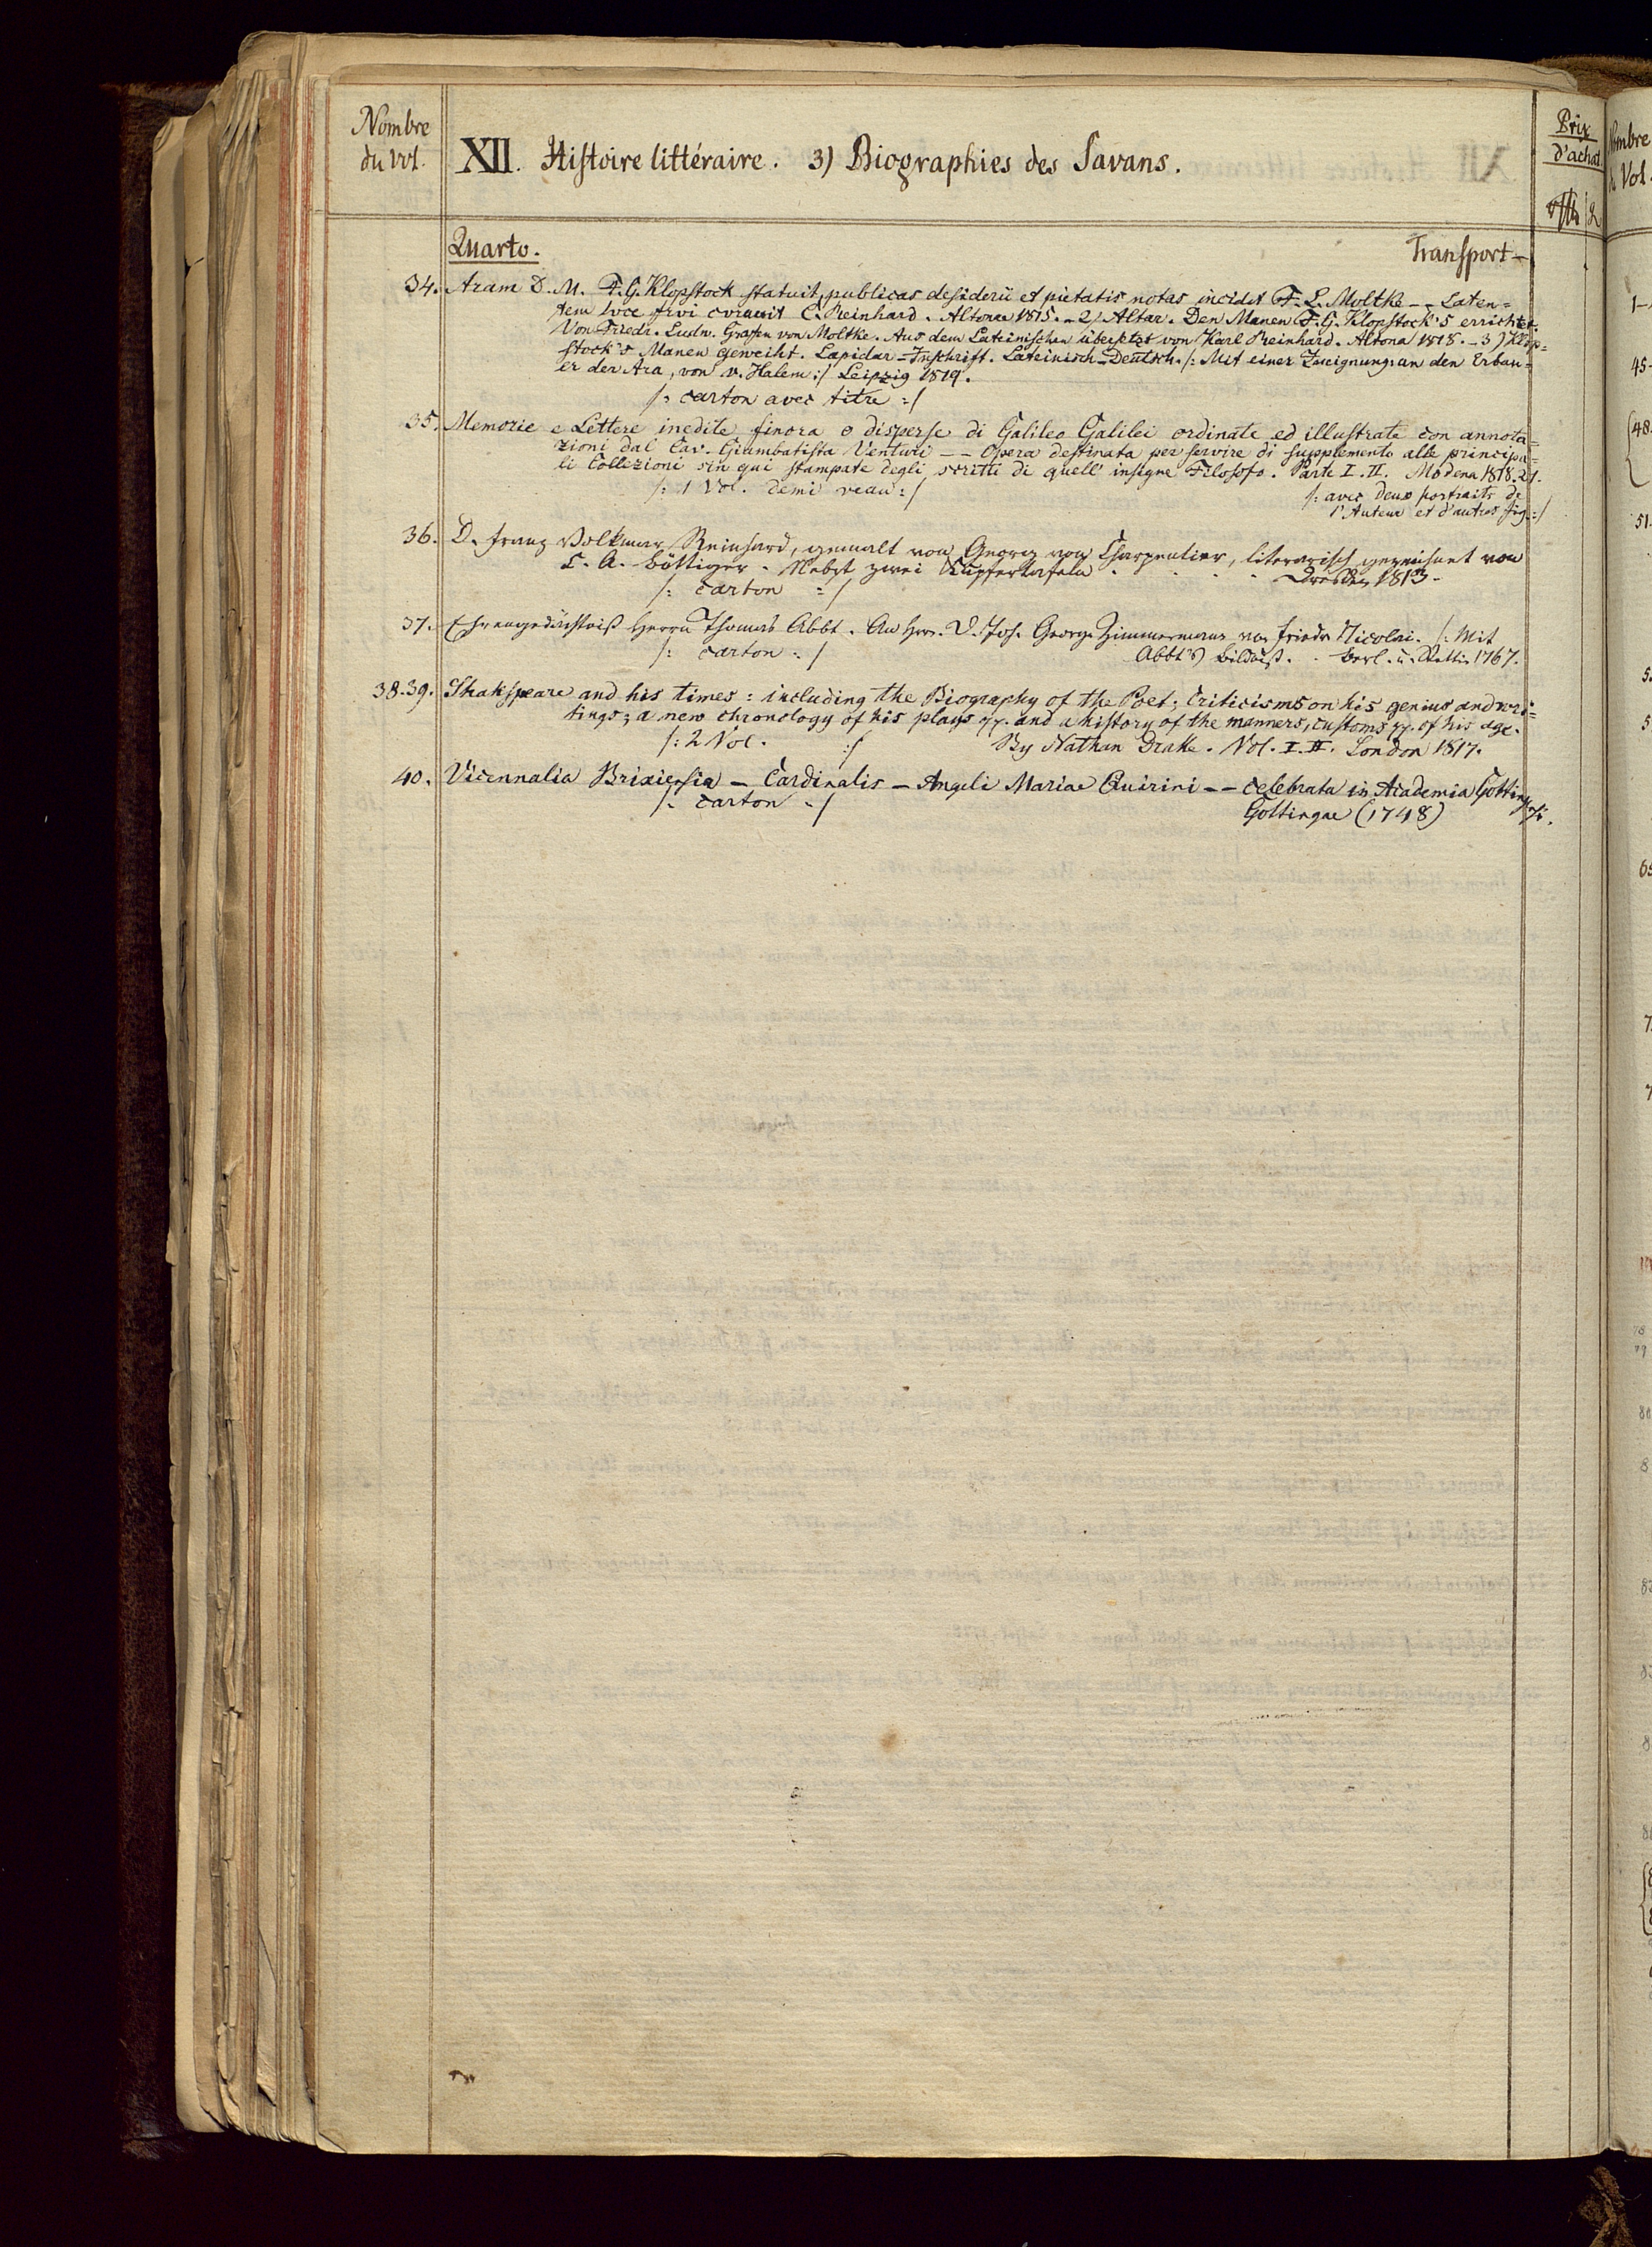 Nombre
du Vol.
XII. Histoire littéraire. 3) Biographies des Savans.
Prix
d'achat
Quarto.
Transport –
34. Aram D. M. F. G. Klopstock statuit, publicas desiderii et pietatis notas incidit F. L. Moltke – – Laten=
tem luce frui curavit C. Reinhard. Altonae 1815. – 2) Altar. Den Manen F. G. Klopstock's errichtet.
Von Friedr. Ludw. Grafen von Moltke. Aus dem Lateinischen übersetzt von Karl Reinhard. Altona 1818. – 3) Klop=
stock's Manen geweiht. Lapidar-Inschrift. Lateinisch-Deutsch. /: Mit einer Zueignung an den Erbau=
er der Ara, von v. Halem :/ Leipzig 1819.
/: carton avec titre :/
35. Memorie e Lettere inedite finora o disperse di Galileo Galilei ordinate ed illustrate con annota=
zioni dal Cav. Giambatista Venturi – – Opera destinata per servire di supplemento alle principa=
li Collezioni sin qui stampate degli scritti di quell' insigne Filosofo. Parte I. II. Modena 1818. 21.
/: 1 Vol. demi veau :/
/: avec deux portraits de
l'Auteur et d'autres fig. :/
36. D. Franz Volkmar Reinhard, gemalt von Georg von Charpentier, literarisch gezeichnet von
C. A. Böttiger. Nebst zwei Kupfertafeln . . . . Dresden 1813.
/: carton :/
37. Ehrengedächtniß Herrn Thomas Abbt. An Hrn. D. Joh. George Zimmermann von Friedr. Nicolai. /: Mit
/: carton :/
Abbt's Bildniß. . Berl. u. Stettin 1767.
38.39. Shakspeare and his times: including the Biography of the Poet; criticisms on his genius and wri=
tings; a new chronology of his plays &c. and a history of the manners, customs &c. of his age.
/: 2 Vol. :/
By Nathan Drake. Vol. I. II. London 1817.
40. Vicennalia Brixiensia – Cardinalis – Angeli Mariae Quirini – – celebrata in Academia Gottingensi.
/: carton :/
Gottingae (1748)
Nombre
Vol.
1–
45–
48.
51.